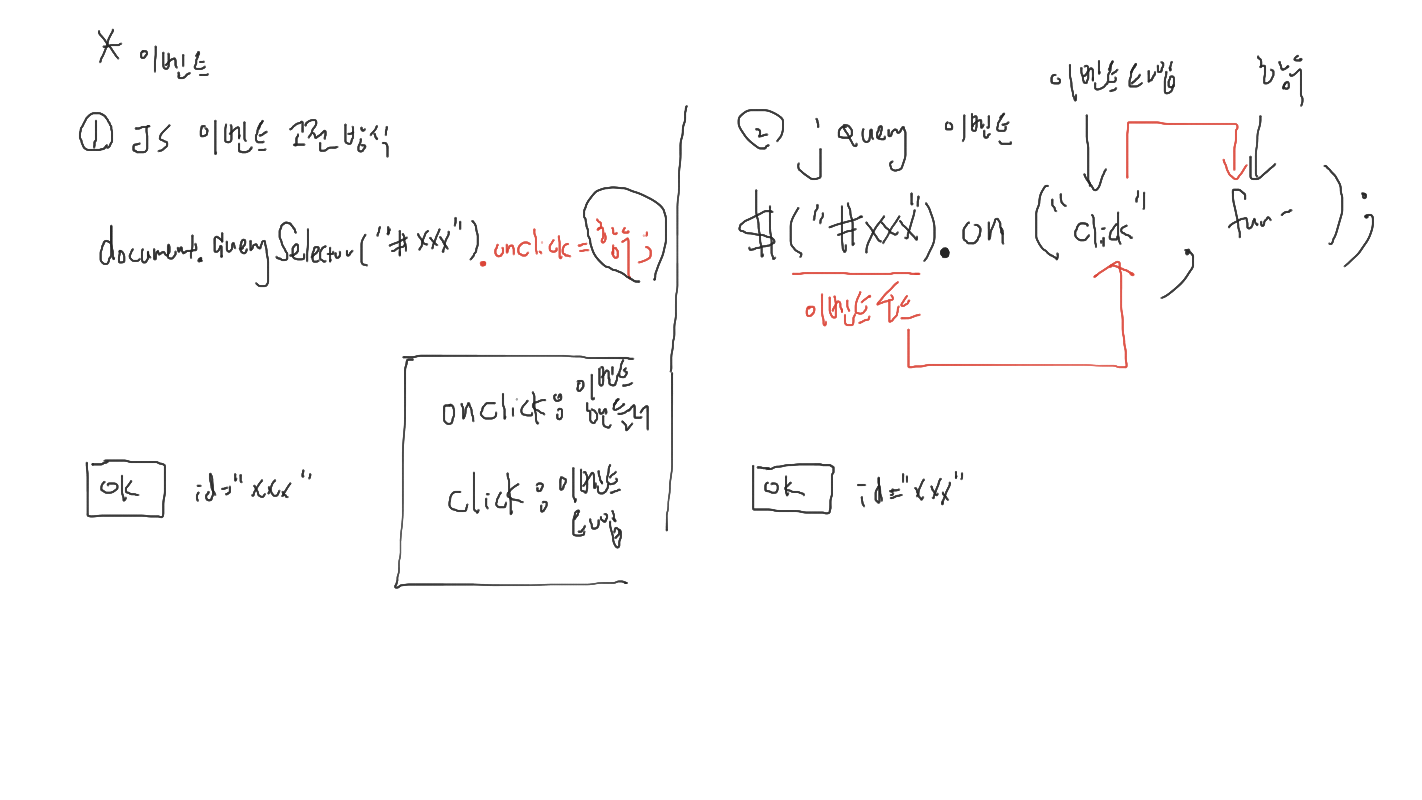 * 이벤트
① JS 이벤트 고전방식
document.querySelector("#xxx").onclick=함수;
onclick: 이벤트
핸들러
click: 이벤트
타입
ok id="xxx"
② jQuery 이벤트
이벤트 타입
$("#xxx").on("click", fun~);
이벤트 소스
ok id="xxx"